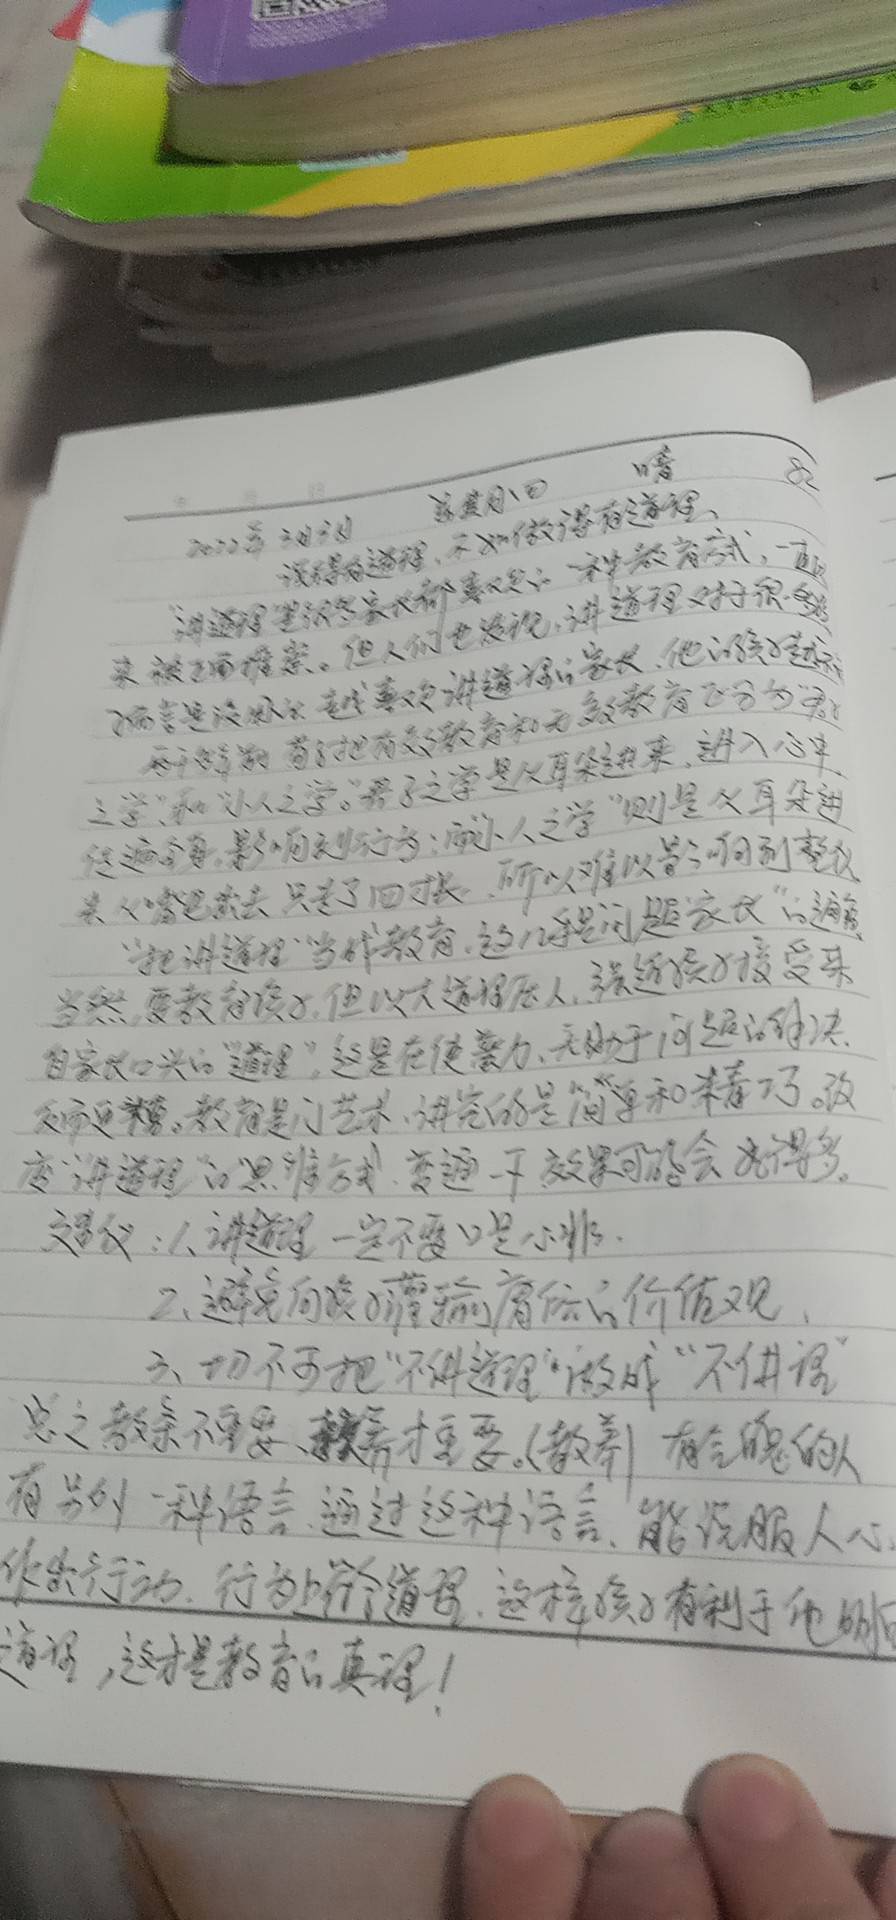 2022年3月3日 星期四 晴 82
说得有道理，不如做得有道理、
"讲道理"是很多家长都喜欢的一种教育方式，一直以
来被正面推崇。但人们也发现，讲道理对于很多孩
子而言是没 越喜欢讲道理的家长，他的孩子越
荀子把有效教育和无效教育区分为"君子
之学"和"小人之学。"君子之学是从耳朵进来，进入心中
传遍全身，影响到行为；而"小人之学"则是从耳朵进
来从嘴巴出去 只走了四寸长，所以难以影响到整
"把讲道理"当成教育，这几乎是问题家长"的通病
当然，要教育孩子，但以大道理压人，强迫孩子接受来
自家长口头的"道理"，这是在使暴力、无助于问题的解决
反而更糟。教育是门艺术，讲究的是"简单和精巧。改
变"讲道理"的"思维方式，变通一下效果可能会好得多。
建议：1、讲道理一定不要口是心非.
2、避免向孩子灌输庸俗的价值观、
3、切不可把"不讲道理"做成"不讲理"
总之教条不重要、教养才重要。(教养) 有 的人
有另外一种语言、通过这种语言、能说服人心
作出行动、行为上符合道理、这样孩子有利于他明白
道理，这才是教育的真理！